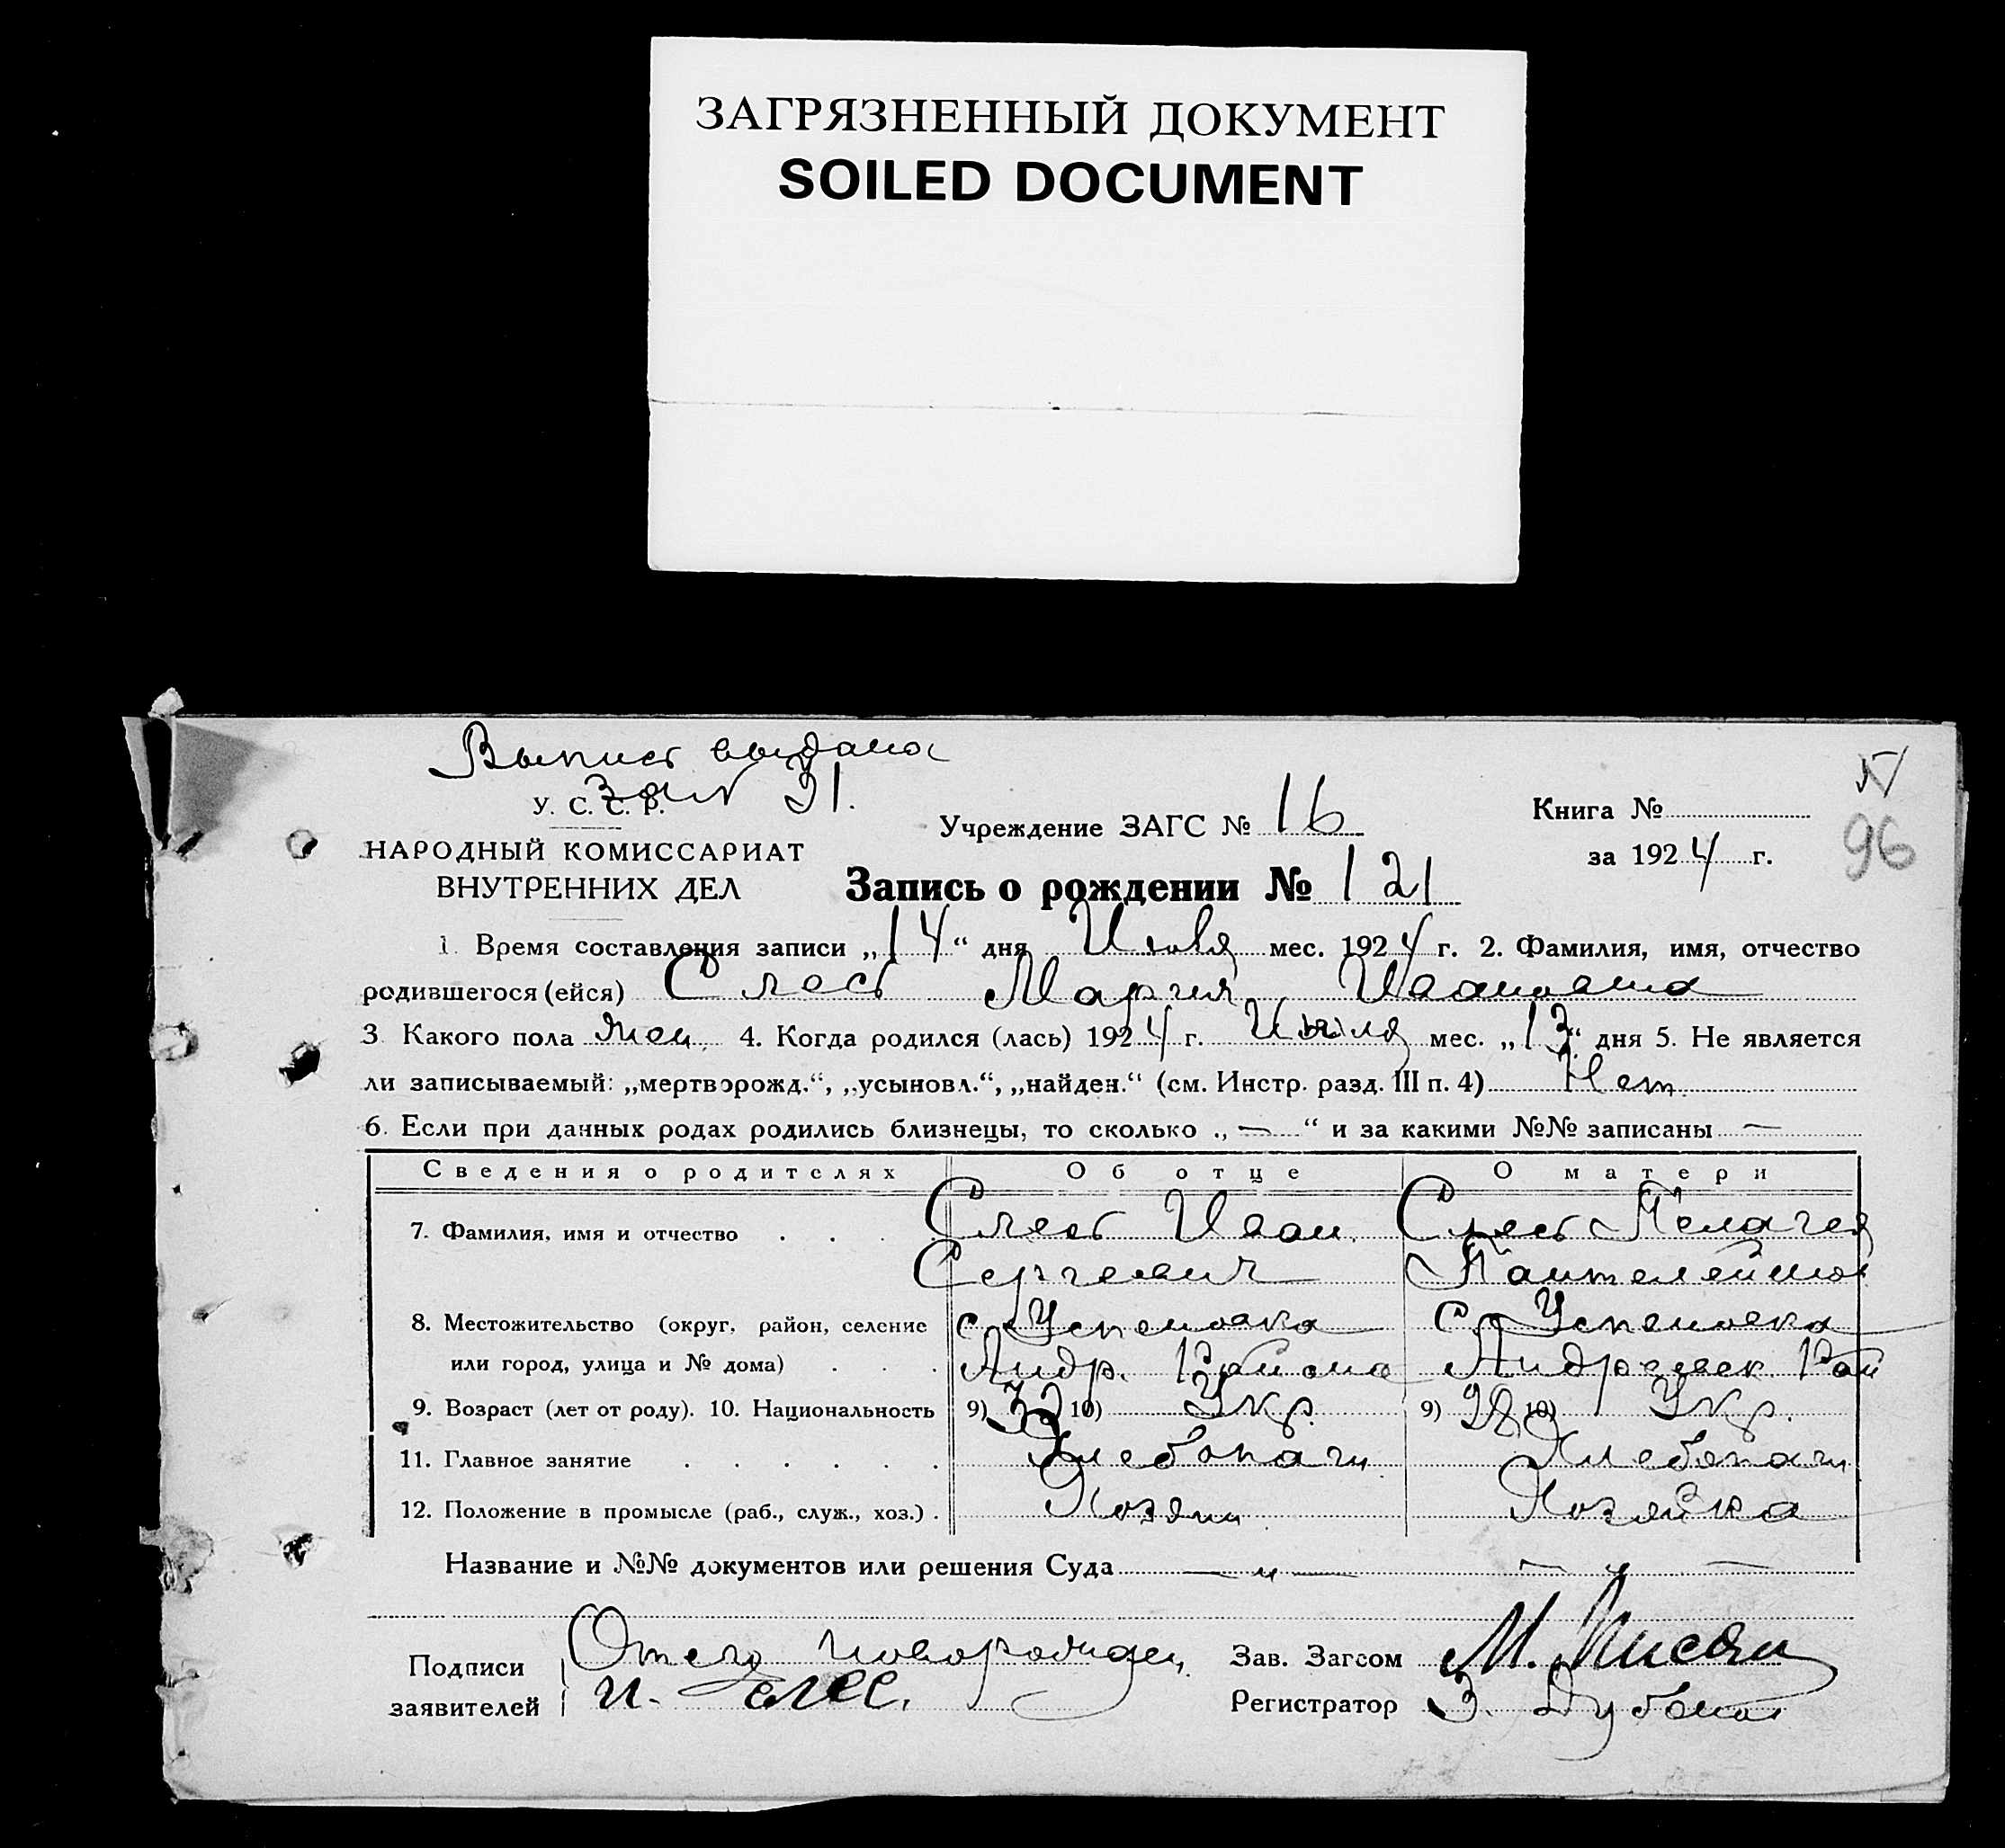 ЗАГРЯЗНЕННЫЙ ДОКУМЕНТ
SOILED DOCUMENT
Выпись выдана
за № 31.
У. С. С. Р.
НАРОДНЫЙ КОМИССАРИАТ
ВНУТРЕННИХ ДЕЛ
Учреждение ЗАГС № 16
Книга №
за 1924 г.
96
Запись о рождении № 121
1. Время составления записи „14“ дня Июля мес. 1924 г. 2. Фамилия, имя, отчество
родившегося (ейся) Слесь Мария Ивановна
3. Какого пола жен. 4. Когда родился (лась) 1924 г. Июля мес. „13“ дня 5. Не является
ли записываемый: „мертворожд.“, „усыновл.“, „найден.“ (см. Инстр. разд. III п. 4) Нет.
6. Если при данных родах родились близнецы, то сколько „—“ и за какими №№ записаны —
Сведения о родителях Об отце О матери
7. Фамилия, имя и отчество . . . . Слесь Иван. Слесь Пелагея
Сергеевич Пантелеймон
8. Местожительство (округ, район, селение с. Успеновка с. Успеновка
или город, улица и № дома) . . . Андр. Района Андреевск. Рай
9. Возраст (лет от роду). 10. Национальность 9) 32 10) Укр. 9) 28 10) Укр.
11. Главное занятие . . . . . . Хлебопаш. Хлебопаш.
12. Положение в промысле (раб., служ., хоз.) . Хозяин Хозяйка
Название и №№ документов или решения Суда — „ — — „ —
Подписи
заявителей
Отец новорожден.
И. Слес.
Зав. Загсом
Регистратор З.